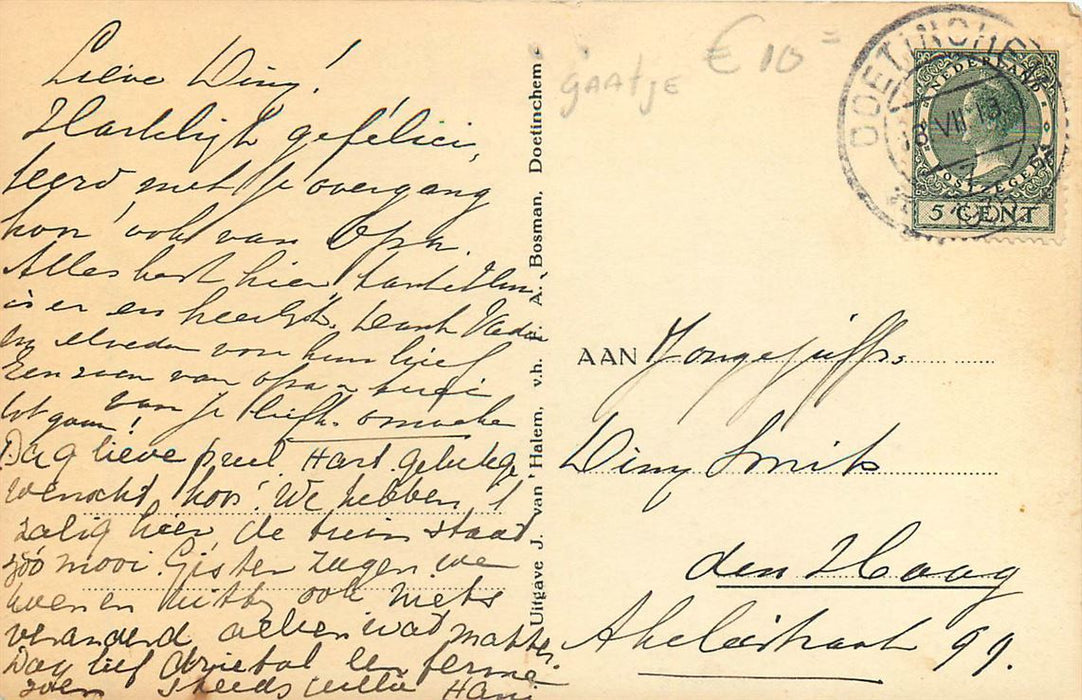 Lieve Diny!
Hartelijk gefelici,
teerd met je overgang
hoor ook van Opa.
Alles best hier tante
is er en heerlijk. Dank Vader
en moeder voor hun brief
Een zoen van opa
tot gauw! van je liefh. omoeke
Dag lieve prul. Hart. geluk
wenscht, hoor! We hebben 't
zalig hier, de tuin staat
zóó mooi. Gister zagen we
ook niets
veranderd alleen wat matter.
Dag lief een ferme
zoen steeds jullie
Uitgave J. van Halem, v.h. F. A. Bosman. Doetinchem
gaatje € 10=
DOETINCHEM
18 VII
NEDERLAND
POSTZEGEL
5 CENT
AAN Jongejuffr.
Diny Smits
den Haag
Abeelstraat 99.